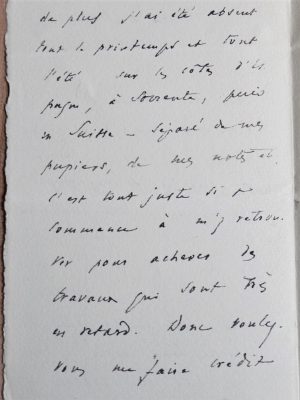 de plus j'ai été absent
tout le printemps et tout
l'été sur les côtes d'Es
pagne, à Sorrente, puis
en Suisse – séparé de mes
papiers, de mes notes et
c'est tout juste si je
commence à m'y retrou-
ver pour achever des
travaux qui sont très
en retard. Donc voulez-
vous me faire crédit